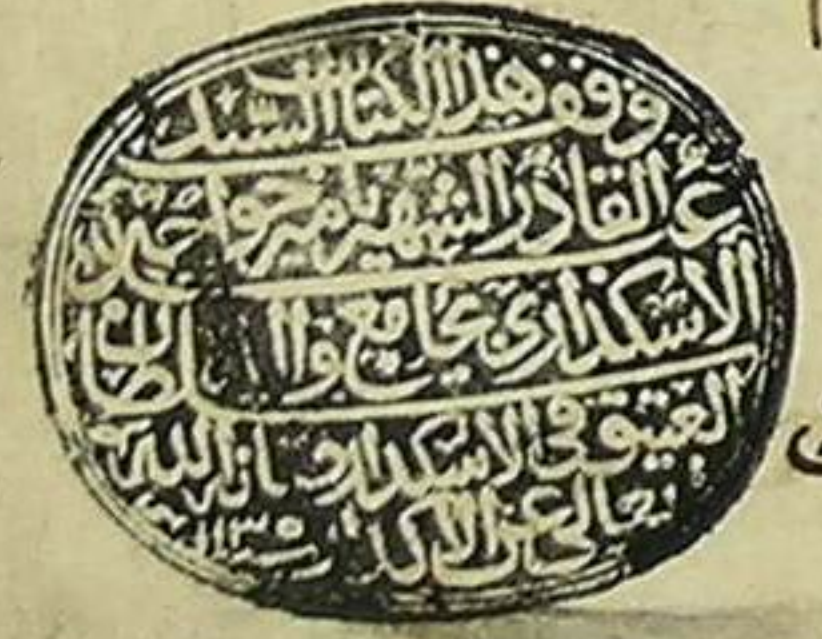 وقف هذا الكتاب السيد
عبد القادر الشهير بامير خواجه
الاسكداري بجامع والدة السلطان
العتيق في الاسكدار صانه الله
تعالى عن الاكدار سنه ١١٣٥